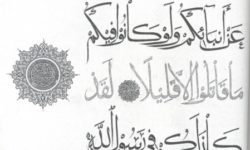 عَنْ أَنْبَائِكُمْ وَلَوْ كَانُوا فِيكُمْ
مَا قَاتَلُوا إِلَّا قَلِيلًا لَقَدْ
كَانَ لَكُمْ فِي رَسُولِ اللَّهِ